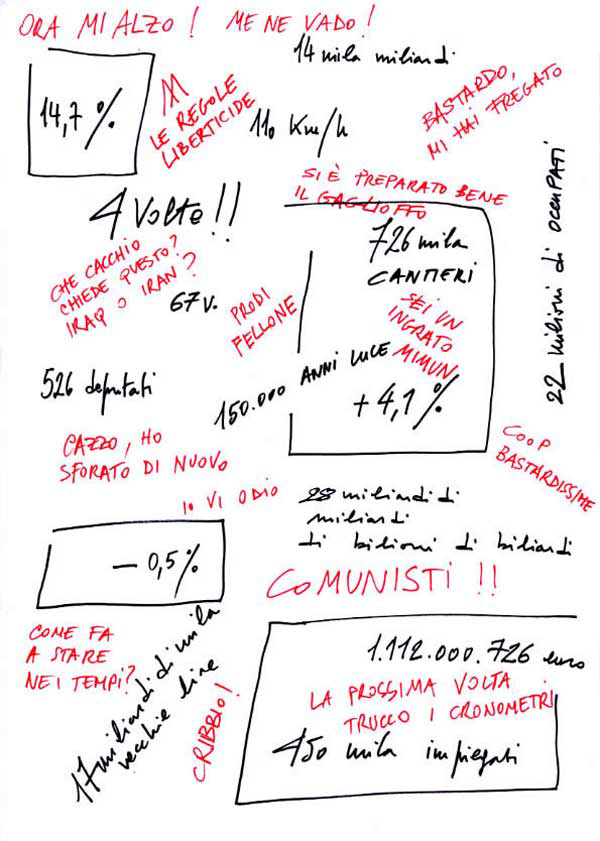 ORA MI ALZO! ME NE VADO!
14 mila miliardi
14,7 %
LE REGOLE
LIBERTICIDE
110 Km/h
BASTARDO,
MI HAI FREGATO
SI È PREPARATO BENE
IL GAGLIOFFO
4 Volte!!
726 mila
CANTIERI
22 milioni di occupati
CHE CACCHIO
CHIEDE QUESTO?
IRAQ O IRAN?
67 v.
PRODI
FELLONE
SEI UN
INGRATO
MIMUN
526 deputati
150.000 ANNI LUCE
+ 4,1 %
CAZZO, HO
SFORATO DI NUOVO
COOP
BASTARDISSIME
IO VI ODIO
28 miliardi di
miliardi
di bilioni di biliardi
- 0,5 %
COMUNISTI!!
COME FA
A STARE
NEI TEMPI?
17 miliardi di mila
vecchie lire
CRIBBIO!
1.112.000.726 euro
LA PROSSIMA VOLTA
TRUCCO I CRONOMETRI
450 mila impiegati